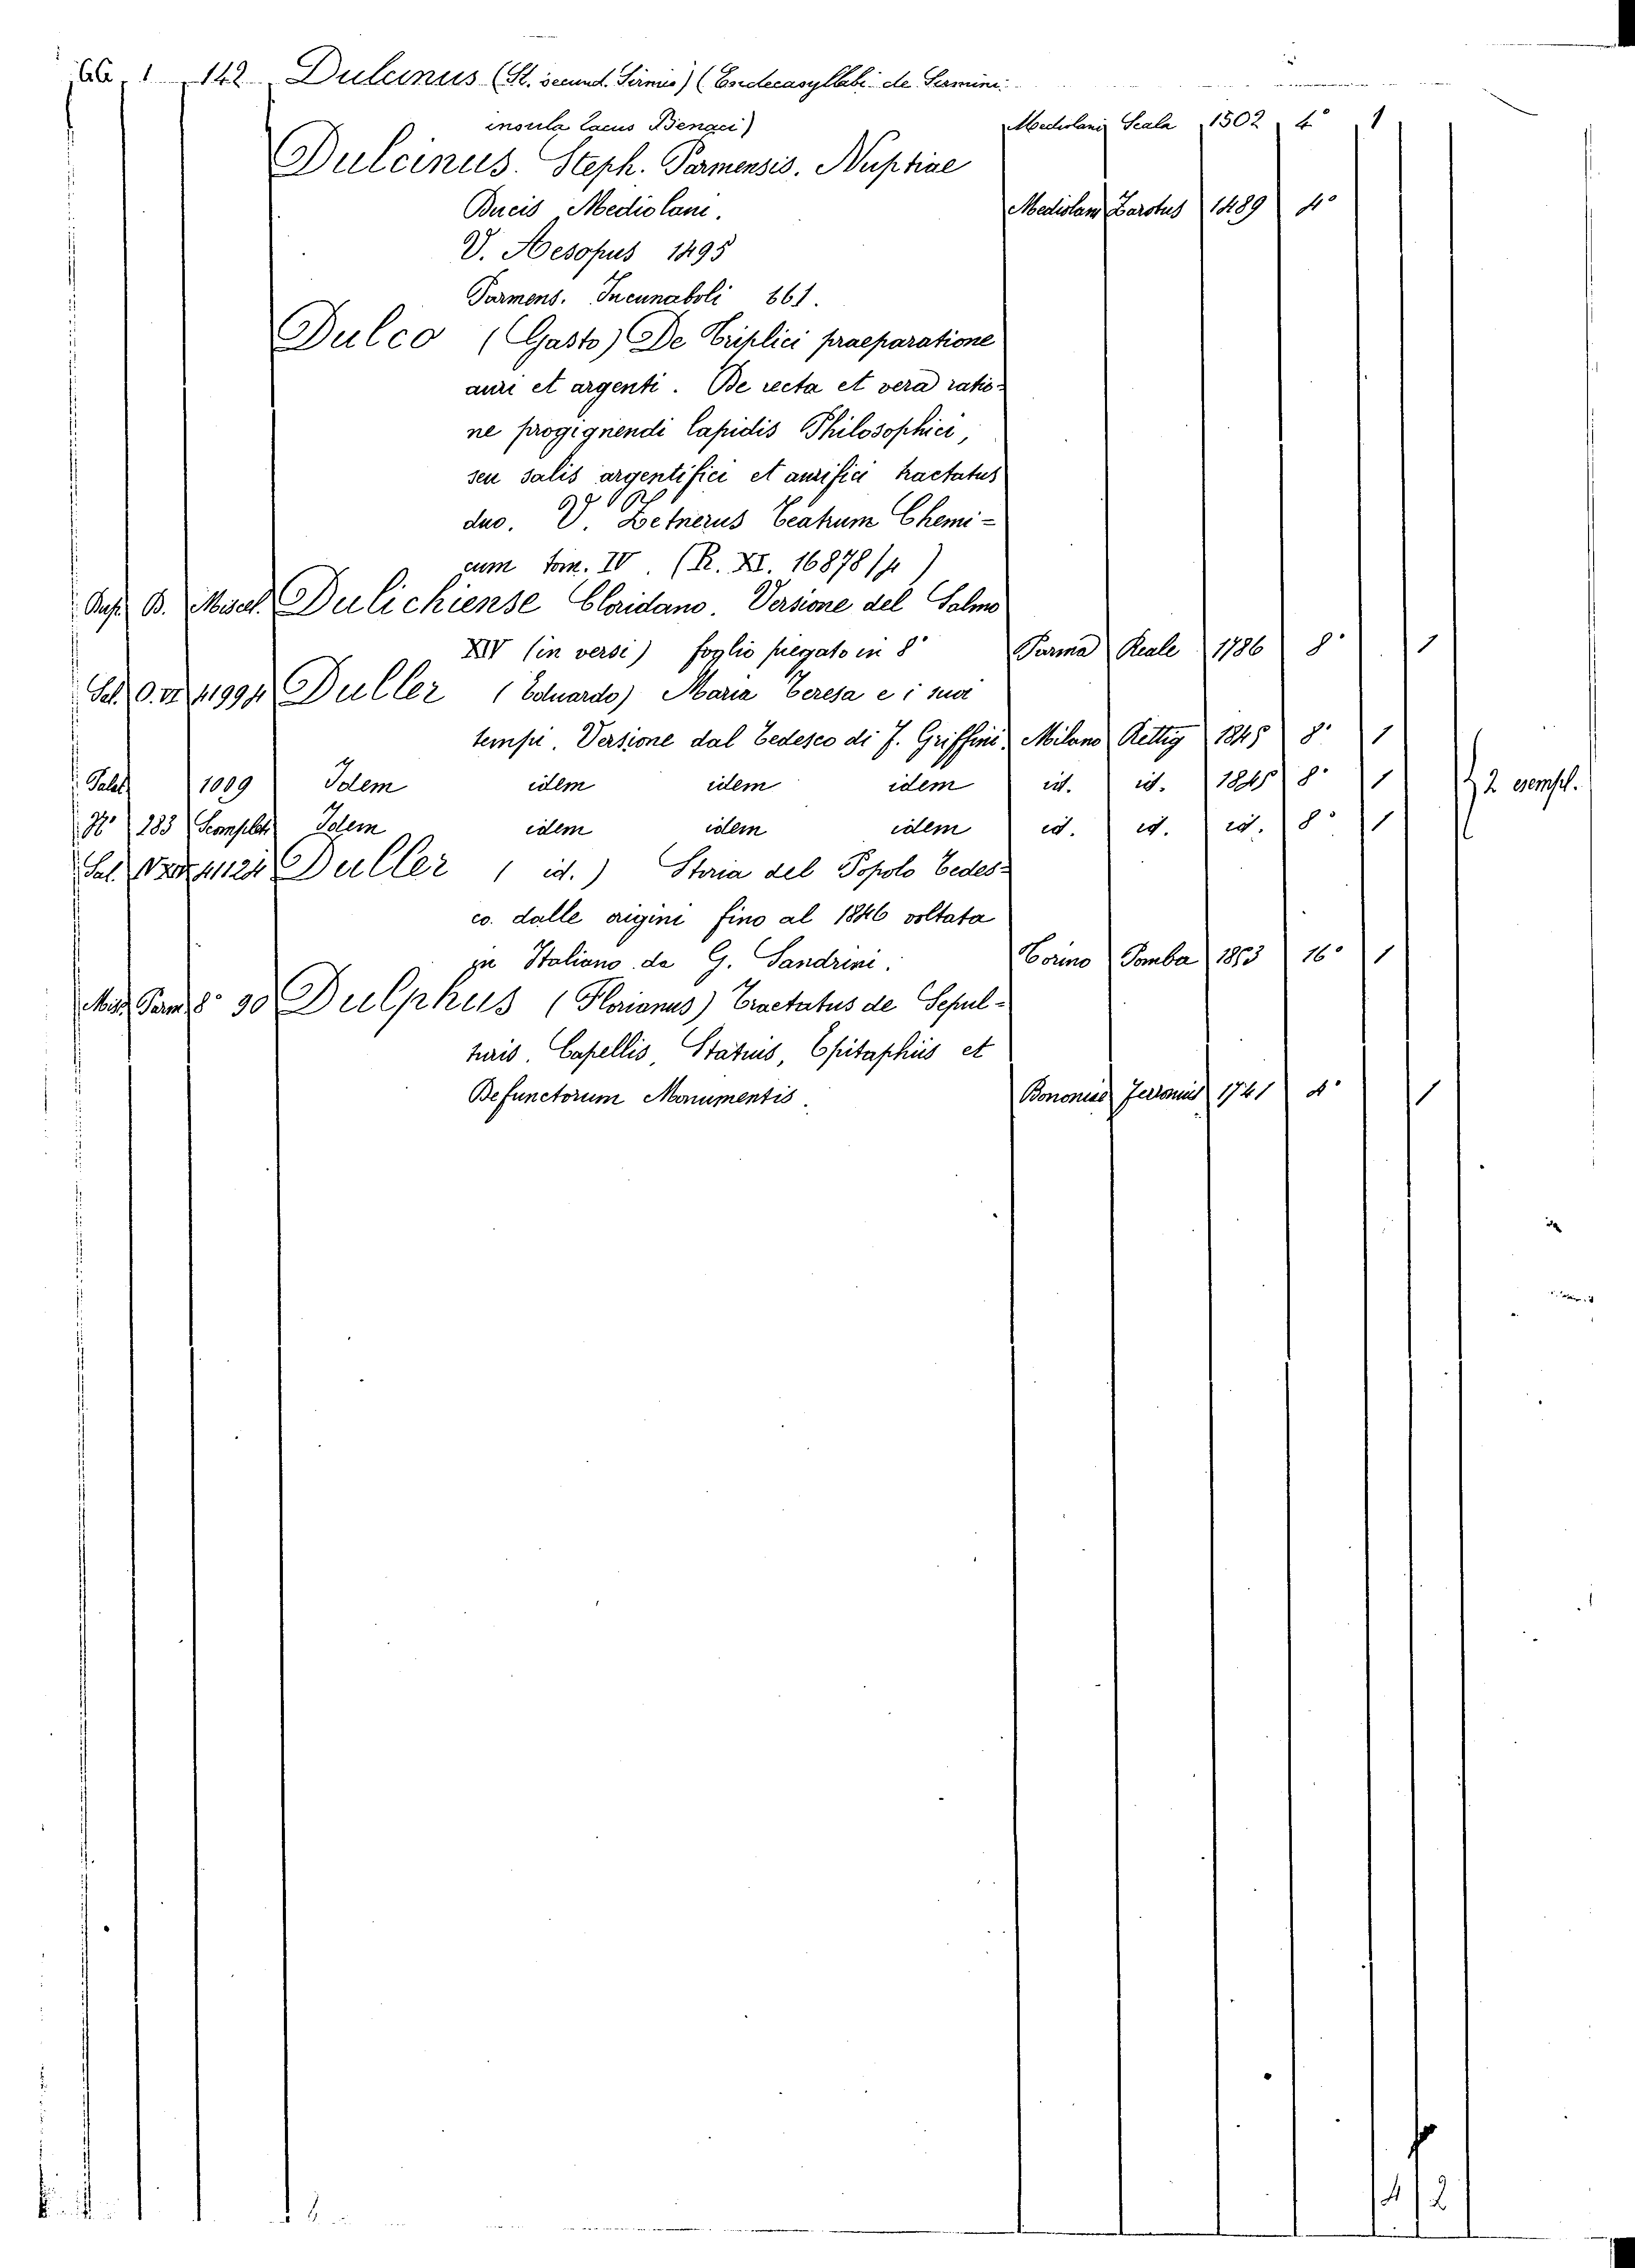 1 142 Dulcinus (St. secund. Sirmio) (Endecasyllabi de Sermini
insula lacus Benaci) Mediolani Scala 1502 4° 1
Dulcinus. Steph. Parmensis. Nuptiae
Ducis Mediolani. Mediolani Zarotus 1489 4°
V. Aesopus 1495
Parmens. Incunaboli 861.
Dulco (Gasto) De Triplici praeparatione
auri et argenti. De recta et vera ratio-
ne progignendi lapidis Philosophici,
seu salis argentifici et aurifici tractatus
duo. V. Zetnerus Teatrum Chemi-
cum tom. IV. (R. XI. 16878/4)
B. Miscel. Dulichiense Cloridano. Versione del Salmo
XIV (in versi) foglio piegato in 8° Parma Reale 1786 8° 1
Sal. O. VI 41994 Duller (Eduardo) Maria Teresa e i suoi
tempi. Versione dal Tedesco di J. Griffini. Milano Rettig 1845 8° 1
Palat. 1009 Idem idem idem idem id. id. 1845 8° 1 2 esempl.
N° 283 Idem idem idem idem id. id. id. 8° 1
Sal. Duller (id.) Storia del Popolo Tedes-
co. dalle origini fino al 1846 voltata
in Italiano da G. Sandrini. Torino Pomba 1853 16° 1
Misc. Parm. 8° 90 Dulphus (Florianus) Tractatus de Sepul-
turis. Capellis, Statuis, Epitaphiis et
Defunctorum Monumentis. Bononiae 1741 4° 1
4 2